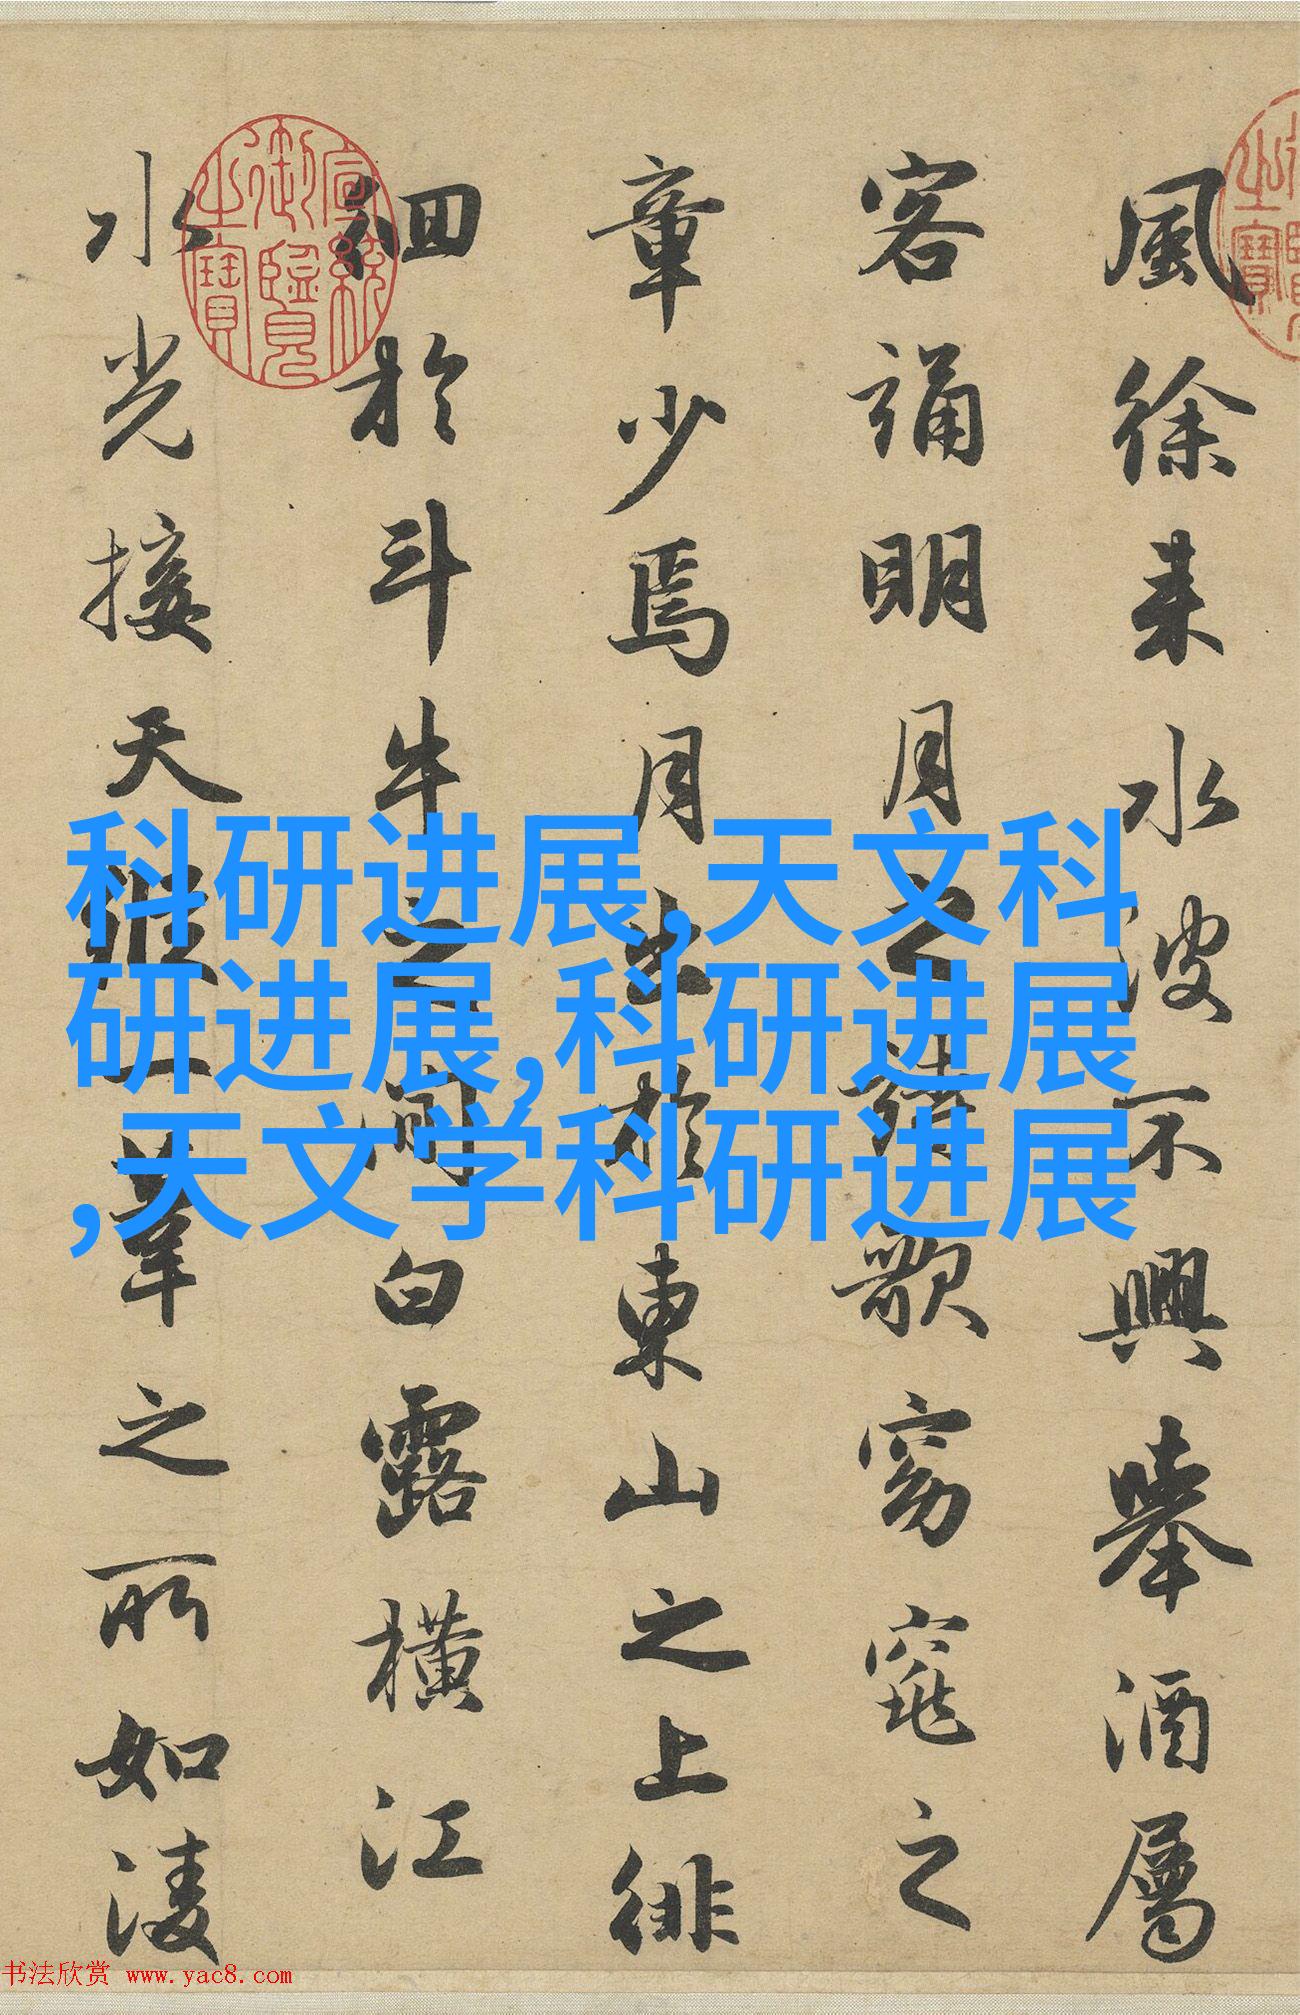 風徐来水波不興舉酒屬
客誦明月之詩歌窈窕之
章少焉月出於東山之上徘
徊於斗牛之間白露橫江
水光接天縱一葦之所如凌
宣統御覽之寶
科研进展,天文科
研进展,科研进展
,天文学科研进展
书法欣赏 www.yac8.com